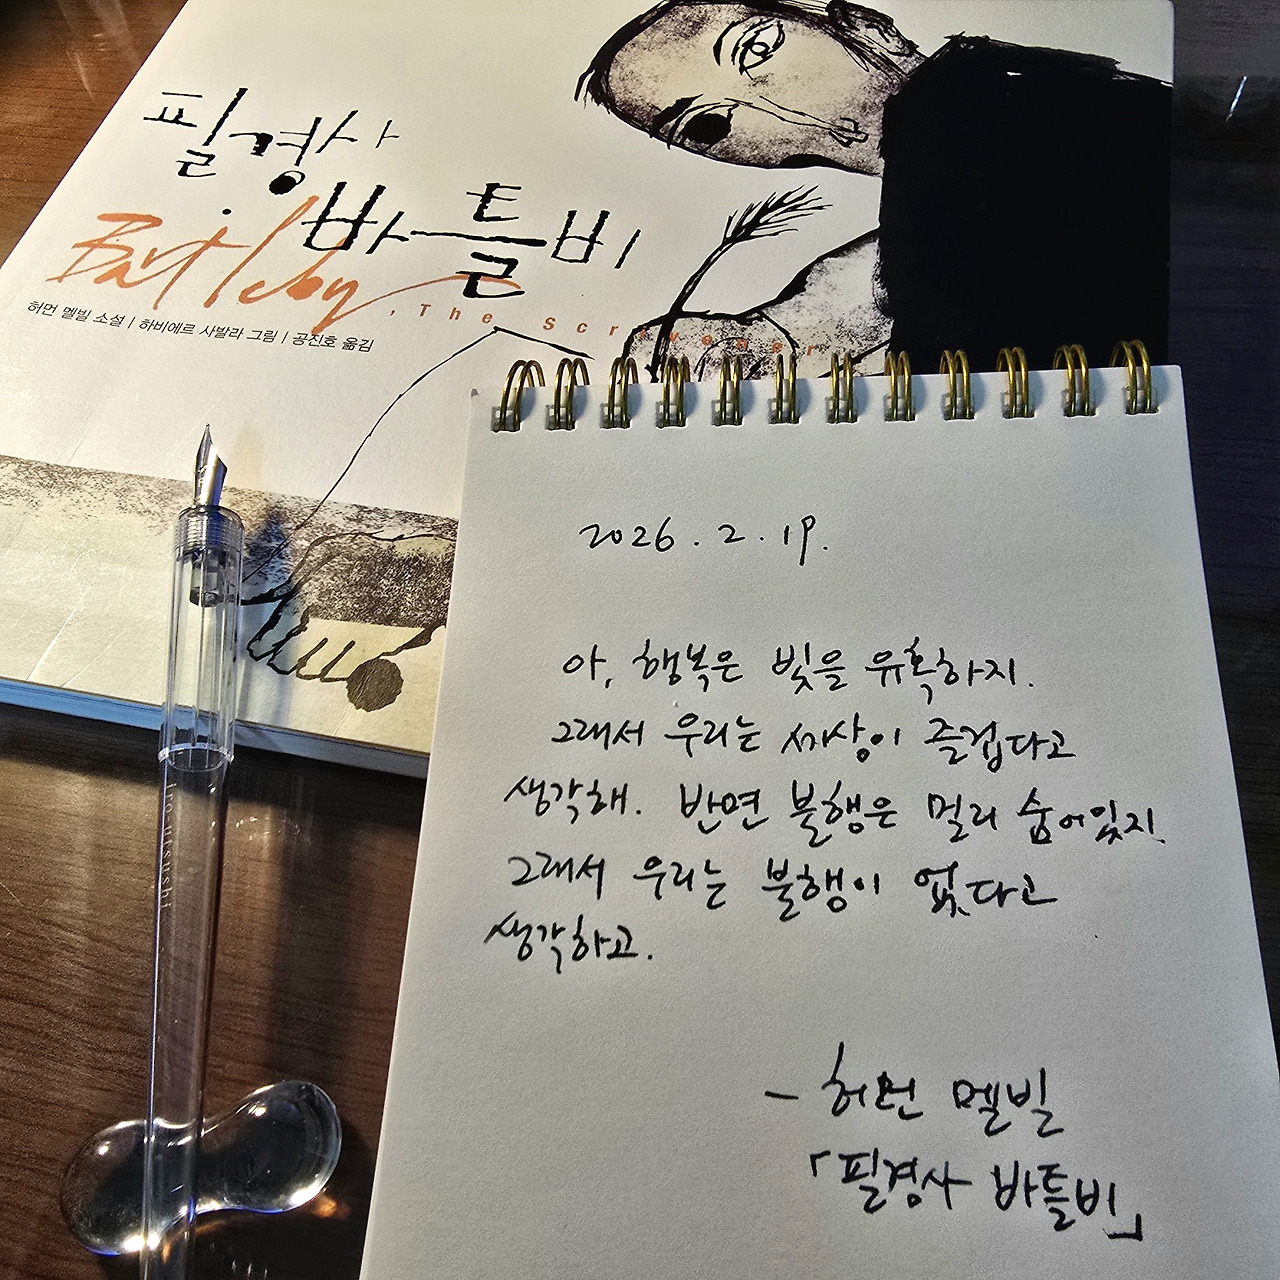 필경사
바틀비
Bartleby
, The Scrivener
허먼 멜빌 소설 | 하비에르 사발라 그림 | 공진호 옮김
iroutsushi
2026. 2. 19.
아, 행복은 빛을 유혹하지.
그래서 우리는 세상이 즐겁다고
생각해. 반면 불행은 멀리 숨어있지.
그래서 우리는 불행이 없다고
생각하고.
- 허먼 멜빌
「필경사 바틀비」